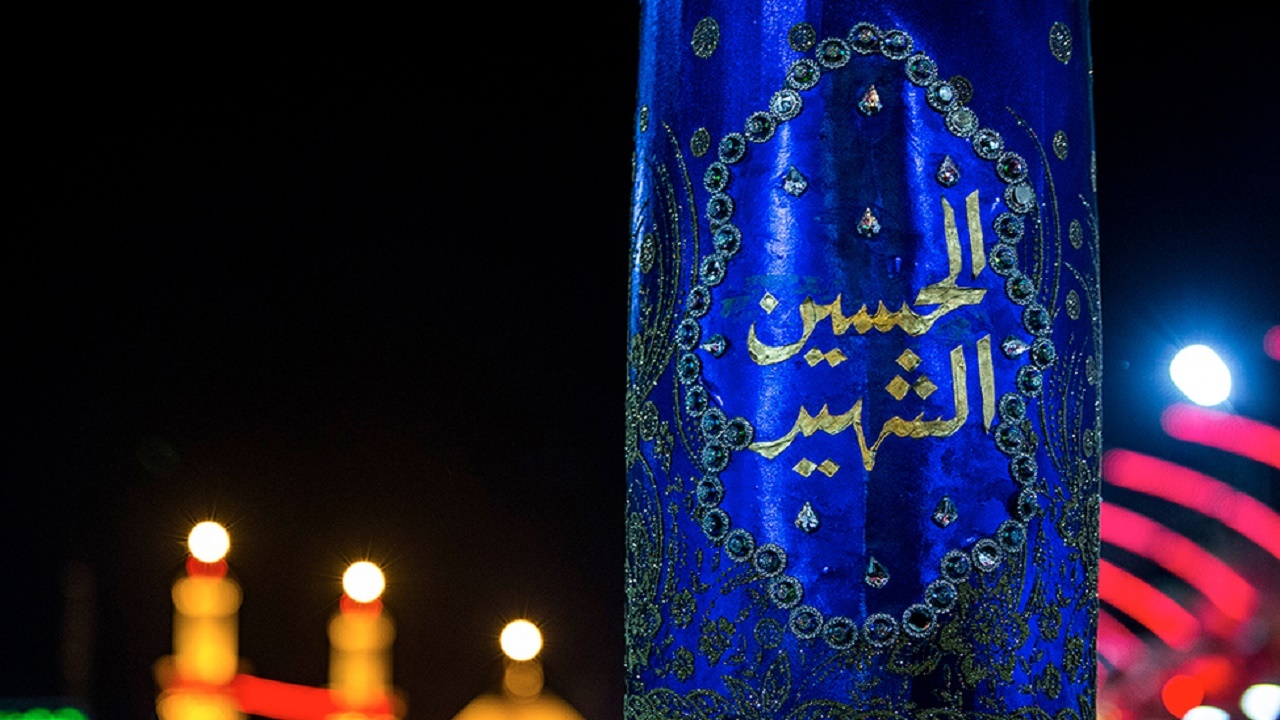 الحسين
الشهيد